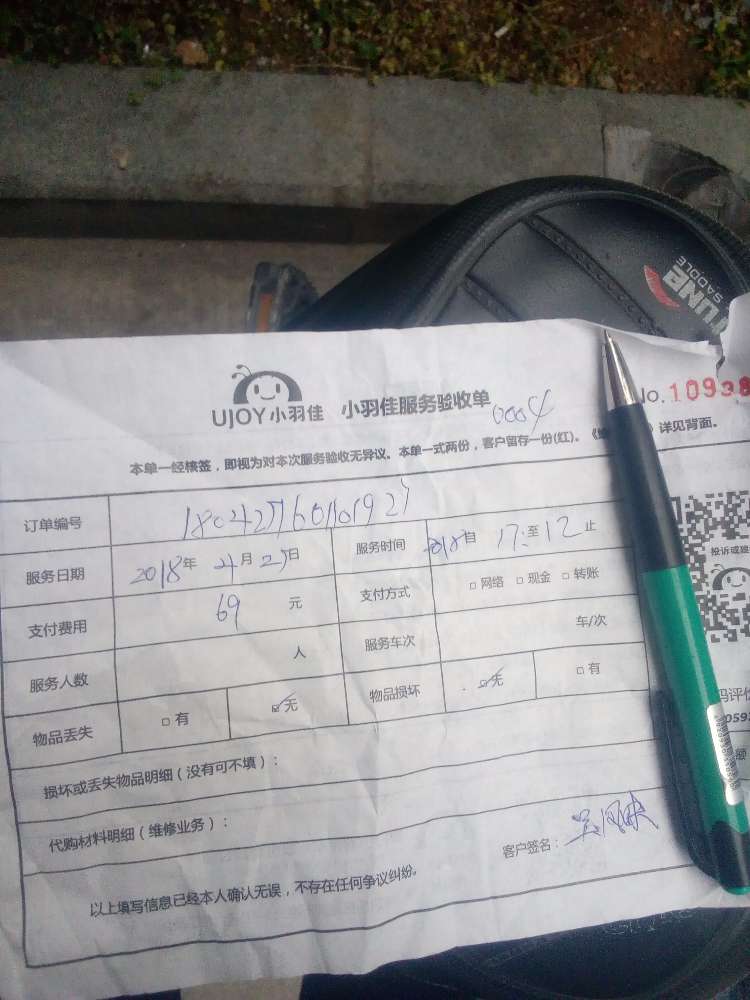 UNE
SADDLE
UJOY小羽佳 小羽佳服务验收单 0004 No. 10938
本单一经核签，即视为对本次服务验收无异议。本单一式两份，客户留存一份(红)。《 》详见背面。
订单编号
服务日期 2018年 4月 25日 服务时间 2018自 17: 至 12 止
支付费用 69 元 支付方式 □ 网络 □ 现金 □ 转账
服务人数 人 服务车次 车/次
物品丢失 □ 有 ☑无 物品损坏 ☑无 □ 有
损坏或丢失物品明细（没有可不填）：
代购材料明细（维修业务）：
客户签名：
以上填写信息已经本人确认无误，不存在任何争议纠纷。
投诉或
码评价
059